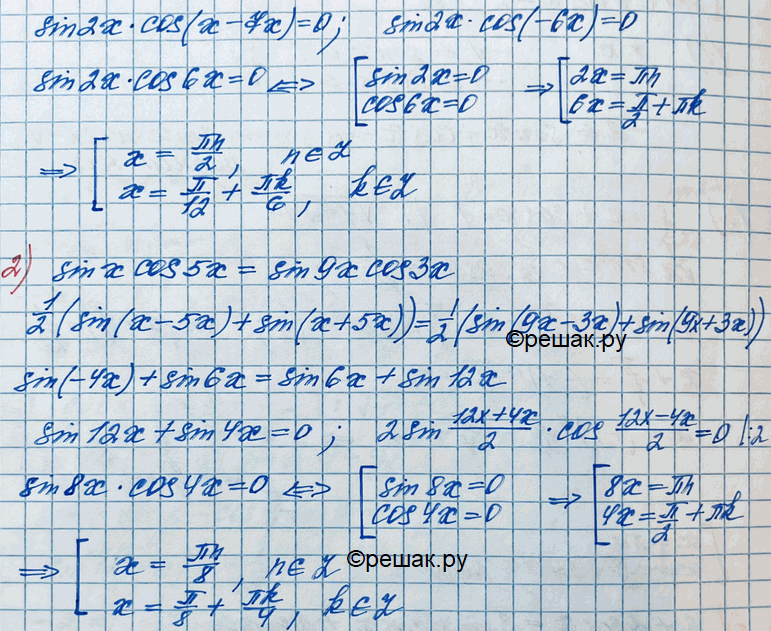 sin2x · cos(x-7x)=0; sin2x · cos(-6x)=0
sin2x · cos6x=0 ⟺ [ sin2x=0 ⟹ [ 2x=πn
cos6x=0 6x=π/2+πk
⟹ [ x = πn/2, n∈Z
x = π/12 + πk/6, k∈Z
2) sinx cos5x = sin9x cos3x
1/2(sin(x-5x)+sin(x+5x))=1/2(sin(9x-3x)+sin(9x+3x))
©решак.ру
sin(-4x)+sin6x=sin6x+sin12x
sin12x+sin4x=0; 2sin (12x+4x)/2 · cos (12x-4x)/2 =0 |:2
sin8x · cos4x=0 ⟺ [ sin8x=0 ⟹ [ 8x=πn
cos4x=0 4x=π/2+πk
©решак.ру
⟹ [ x = πn/8, n∈Z
x = π/8 + πk/4, k∈Z